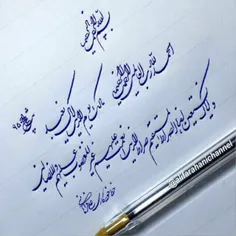 بسم الله الرحمن الرحیم
الحمد لله رب العالمین الرحمن الرحیم
مالک یوم الدین ایاک نعبد
و ایاک نستعین اهدنا الصراط المستقیم صراط الذین انعمت علیهم غیر المغضوب علیهم و لا الضالین
@alitarahanichannel